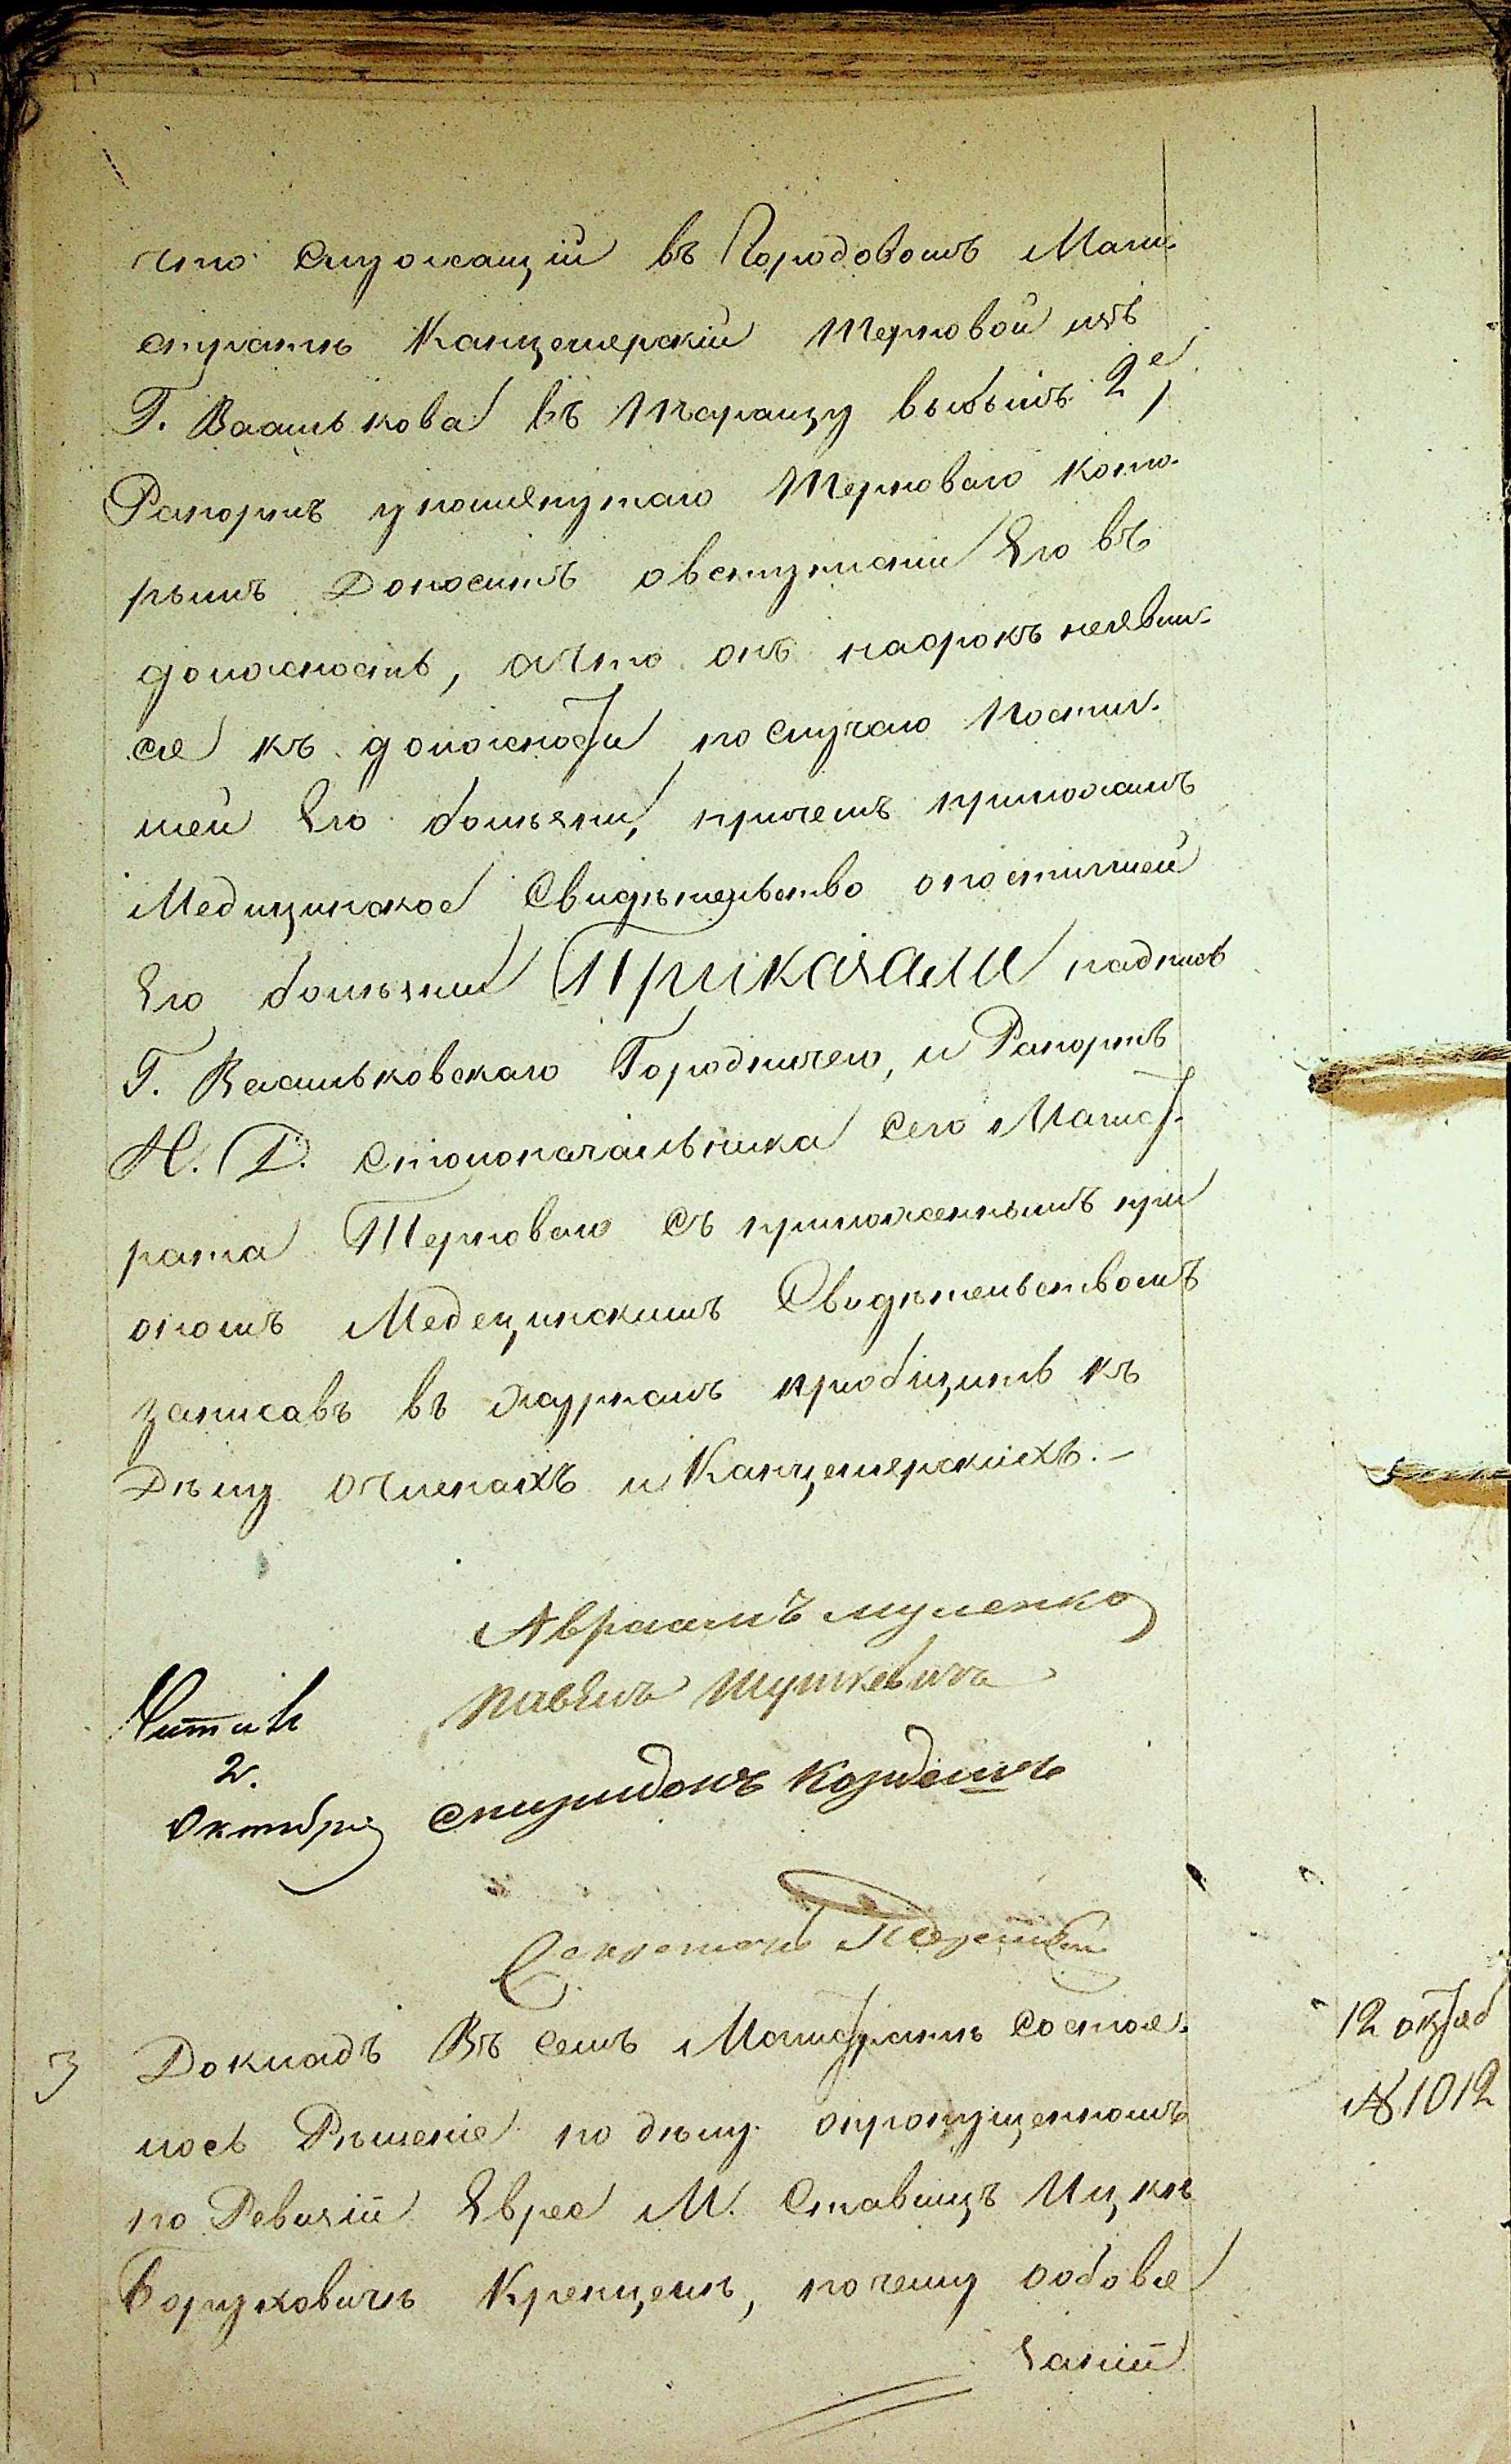 что служащій въ Городовомъ Маги-
стратѣ Канцелярскій Терновой изъ
Г. Василькова въ Таращу выбылъ. 2е,
Рапортъ упомянутаго Терноваго кото-
рымъ Доноситъ овступленіи Его въ
должность, ачто онъ насрокъ неявил-
ся къ должности послучаю Постиг-
шей Его болѣзни, причемъ приложилъ
Медицинское Свидѣтельство опостигшей
Его болѣзни Приказали надпись
Г. Васильковскаго Городничего, и Рапортъ
И. Д. Столоначальника Сего Магист-
рата Терноваго Съ приложеннымъ при
ономъ Медецинскимъ Свидѣтельствомъ
записавъ въ журналъ приобщить къ
Дѣлу очленахъ и Канцелярскихъ.—
Авраамъ
Павелъ
Читалъ
2.
Октября
Спиридонъ
Секретарь
3 Докладъ Въ Семъ Магистратѣ Состоя-
лось Рѣшеніе по дѣлу опропущенномъ
по Ревизіи Еврее М. Ставищъ Ицкѣ
Боруховичѣ Кренцелѣ, почему ообовя
заніи
12 октяб
№ 1012